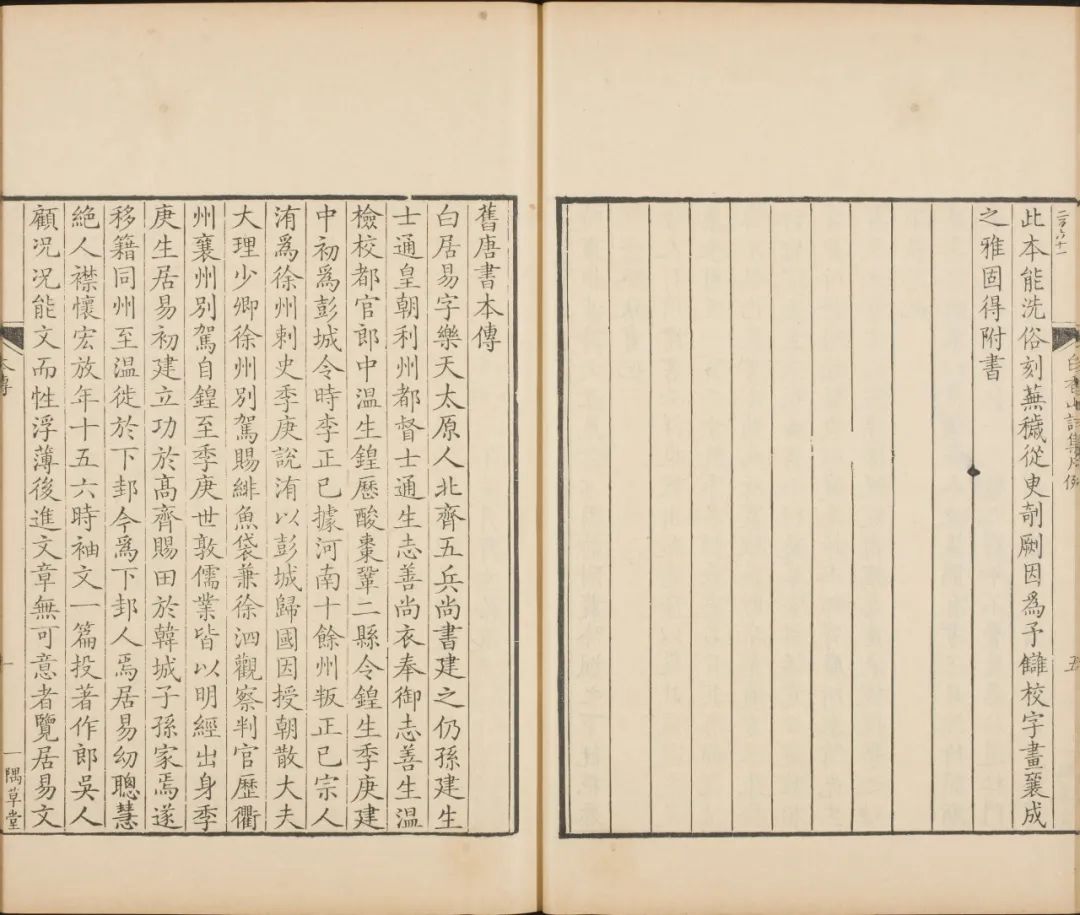 二百六十一
白香山詩集凡例
五
此本能洗俗刻蕪穢從臾剞劂因爲予讎校字畫襄成
之雅固得附書
舊唐書本傳
白居易字樂天太原人北齊五兵尚書建之仍孫建生
士通皇朝利州都督士通生志善尚衣奉御志善生溫
檢校都官郎中溫生鍠歷酸棗鞏二縣令鍠生季庚建
中初爲彭城令時李正已據河南十餘州叛正已宗人
洧爲徐州刺史季庚說洧以彭城歸國因授朝散大夫
大理少卿徐州別駕賜緋魚袋兼徐泗觀察判官歷衢
州襄州別駕自鍠至季庚世敦儒業皆以明經出身季
庚生居易初建立功於高齊賜田於韓城子孫家焉遂
移籍同州至溫徙於下邽今爲下邽人焉居易幼聰慧
絕人襟懷宏放年十五六時袖文一篇投著作郎吳人
顧况况能文而性浮薄後進文章無可意者覽居易文
本傳
一
一隅草堂